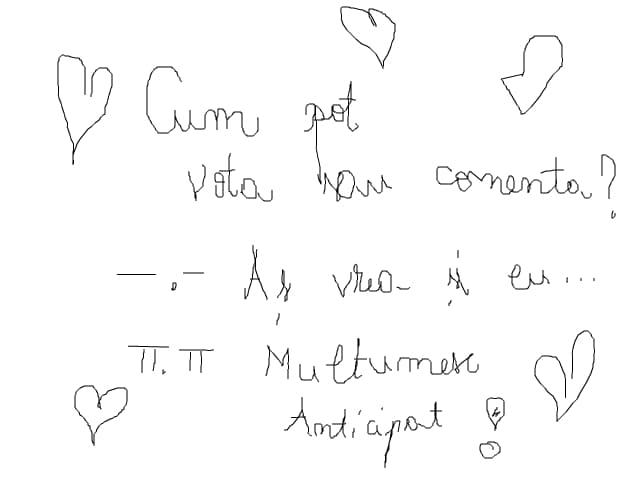 Cum pot
vota sau comenta?
—.— Aș vrea și eu...
π.π Multumesc
Anticipat !